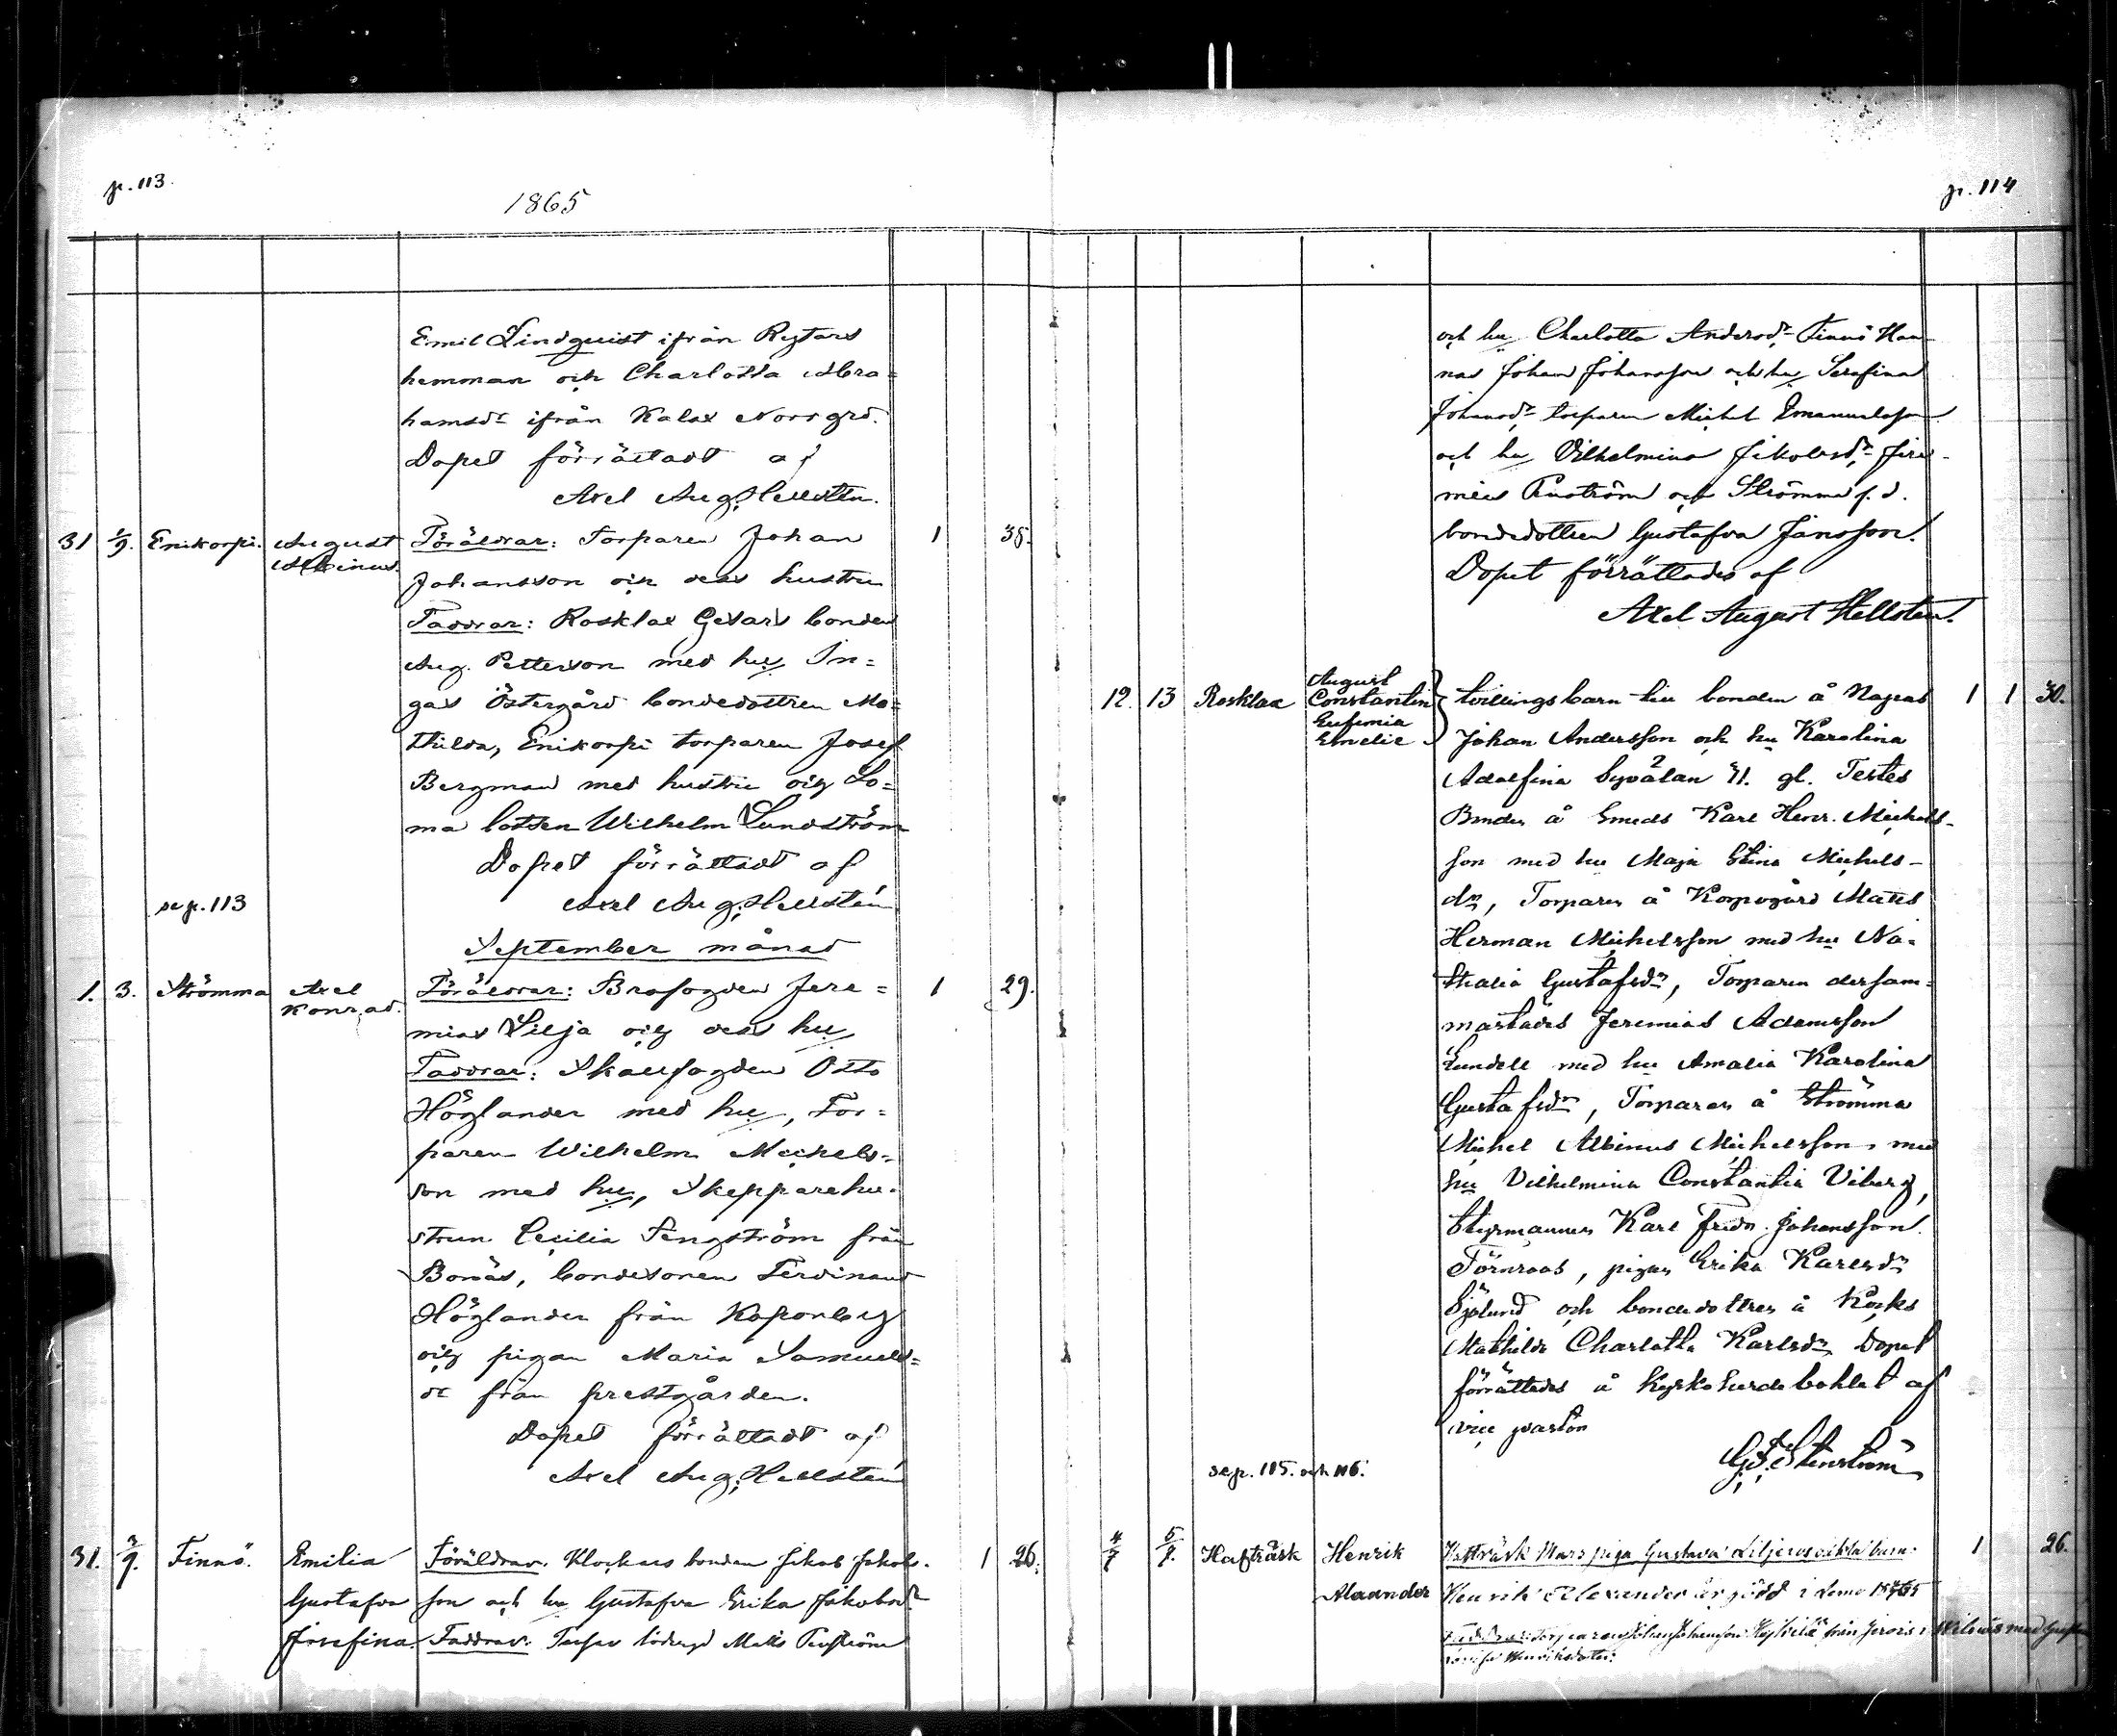 p. 113.
1865
Emil Lindquist ifrån Rytars
hemman och Charlotta Abra=
hamsdr ifrån Kalax Norrgrd.
Dopet förrättadt af
Axel Aug. Hellstén.
31 1/9. Enikorpi. August Albinus. Föräldrar: Torparen Johan 1 38.
Johansson och dess hustru
Faddrar: Rosklax Gesars bonden
Aug. Petterson med hu, In=
gas Östergård bondedottren Ma=
thilda, Enikorpi torparen Josef
Bergman med hustru och Lo=
ma lotsen Wilhelm Sundström
Dopet förrättadt af
Axel Aug. Hellstén
se p. 113
September månad
1. 3. Strömma Axel Konrad. Föräldrar: Brofogden Jere= 1 29.
mias Silja och dess hu
Faddrar: Skallfogden Otto
Höglander med hu, Tor=
paren Wilhelm Michels=
son med hu, Skepparehu=
strun Cecilia Tengström från
Bonäs, bondesonen Ferdinand
Höglander från Koponböle
och pigan Maria Samuels=
dr från prestgården.
Dopet förrättadt af
Axel Aug. Hellstén
31. 3/9. Finnö. Emilia Föräldrar. Klockars bonden Jakob Jakobs- 1 26.
Gustafva son och hu Gustafva Erika Jakobsdr
Josefina. Faddrar. Mats Tenström
p. 114
och hu Charlotta Andersdr Finnö Han-
nas Johan Johansson och hu Serafina
Johansdr torparen Michel Emanuelsson
och hu Vilhelmina Jakobsdr Jere-
mias Tenström och Strömma f.d.
bondedottren Gustafva Jansson.
Dopet förrättades af
Axel August Hellsten.
12. 13 Rosklax August Constantin Eufemia Emelie } tvillingsbarn till bonden å Napas 1 1 30.
Johan Andersson och hu Karolina
Adolfina gl. Testes
Bonden å Smeds Karl Henr. Michels-
son med hu Maja Stina Michels-
dr, Torparen å Korpogård Matts
Herman Michelsson med hu Na-
thalia Gustafsdr, Torparen dersam-
mastädes Jeremias Adamsson
Lundell med hu Amalia Karolina
Gustafsdr, Torparen å Strömma
Michel Albinus Michelsson, med
hu Vilhelmina Constantia Viberg,
Styrmannen Karl Fredr. Johansson
Törnroos, pigan Erika Karlsdr
Sjölund och bondedottren å Kocks
Mathilda Charlotta Karlsdr Dopet
förrättades å Kyrkoherdebohlet af
vice pastorn
G. F. Stenström
se p. 115. och 116.
4/7 5/7. Hafträsk Henrik Hafträsk Mars piga Gustava Liljeros oäkta barn: 1 26.
Alexander Henrik Alexander är född i Lemo
Faddrar: Torparen Johan Johansson från Wilnäs med
Henriksdotter.